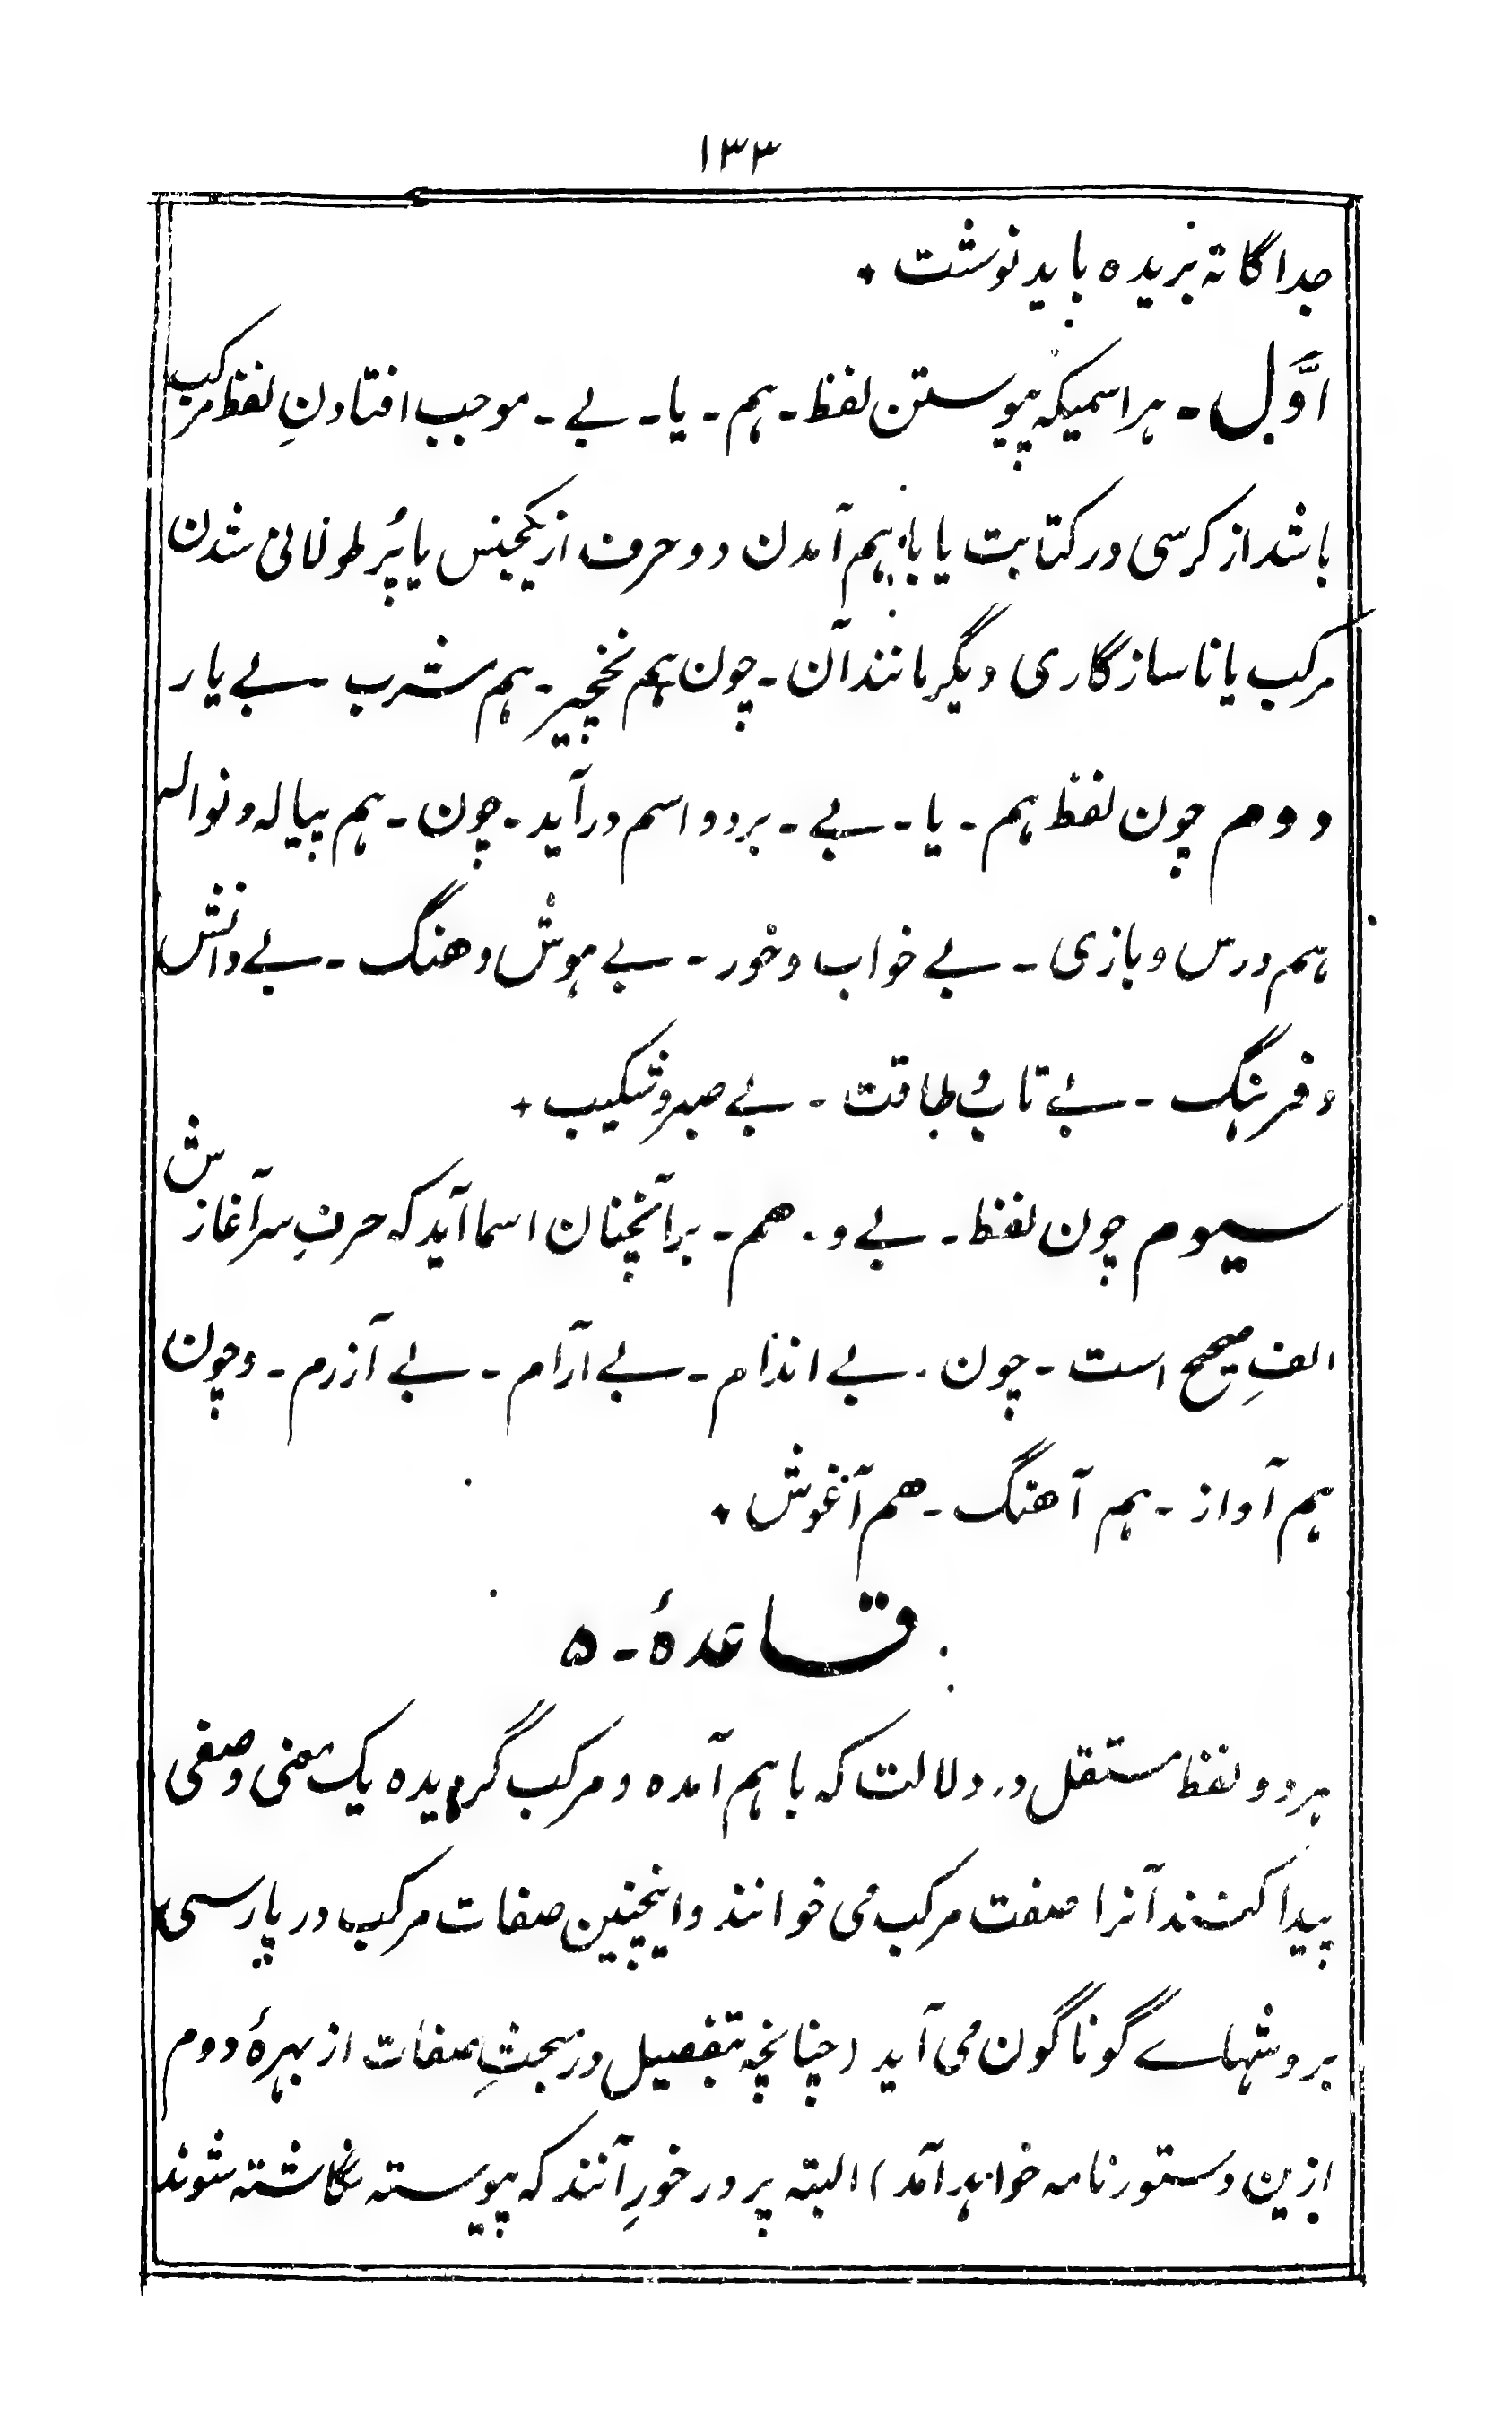 ۱۳۳
جداگانه بریده باید نوشت +
اوَّل - هر اسمیکه پیوستن لفظ - هم - یا - بے - موجب افتادنِ لفظ مرکب
باشد از کرسی در کتابت یا باهم آمدن دو حرف از یکجنس یا پُر طولانی شدن
مرکب یا ناسازگاری دیگر مانند آن - چون هم نخچیر - هم مشرب - بے یار
دوم چون لفظ هم - یا - بے - بر دو اسم درآید - چون - هم پیاله و نواله
هم درس و بازی - بے خواب و خور - بے هوش و هنگ - بے دانش
و فرهنگ - بے تاب و طاقت - بے صبر و شکیب +
سیوم چون لفظ - بے و - هم - بر آنچنان اسما آید که حرفِ سرآغازش
الفِ صحیح است - چون - بے اندام - بے آرام - بے آزرم - و چون
هم آواز - هم آهنگ - هم آغوش +
قاعدهٔ - ۵
هر دو لفظ مستقل در دلالت که باهم آمده و مرکب گردیده یک معنی وصفی
پیدا کنند آنرا صفت مرکب می خوانند و اینچنین صفات مرکب در پارسی
بروشهاے گوناگون می آید (چنانچه بتفصیل در مبحثِ صفات از بهرهٔ دوم
ازین دستورنامه خواهد آمد) البته پر در خورِ آنند که پیوسته نگاشته شوند